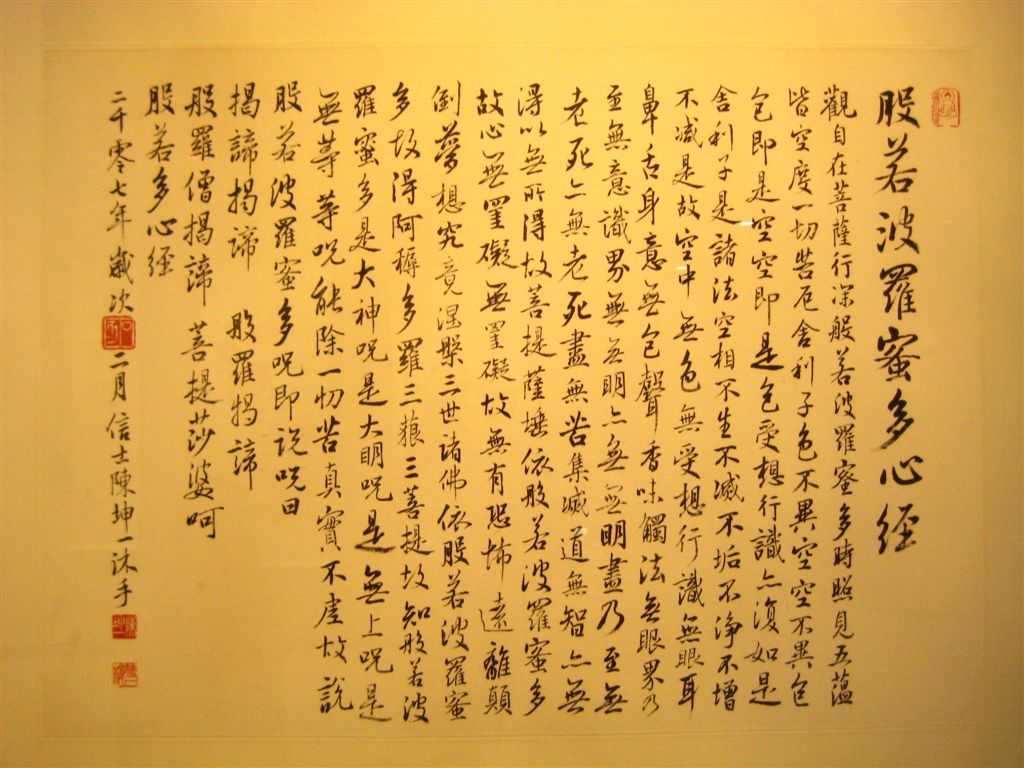 般若波羅蜜多心經
觀自在菩薩行深般若波羅蜜多時照見五蘊
皆空度一切苦厄舍利子色不異空空不異色
色即是空空即是色受想行識亦復如是
舍利子是諸法空相不生不滅不垢不淨不增
不減是故空中無色無受想行識無眼耳
鼻舌身意無色聲香味觸法無眼界乃
至無意識界無無明亦無無明盡乃至無
老死亦無老死盡無苦集滅道無智亦無
得以無所得故菩提薩埵依般若波羅蜜多
故心無罣礙無罣礙故無有恐怖遠離顛
倒夢想究竟涅槃三世諸佛依般若波羅蜜
多故得阿耨多羅三藐三菩提故知般若波
羅蜜多是大神呪是大明呪是無上呪是
無等等呪能除一切苦真實不虛故說
般若波羅蜜多呪即說呪曰
揭諦揭諦 般羅揭諦
般羅僧揭諦 菩提莎婆呵
般若多心經
二千零七年歲次 二月信士陳坤一沐手